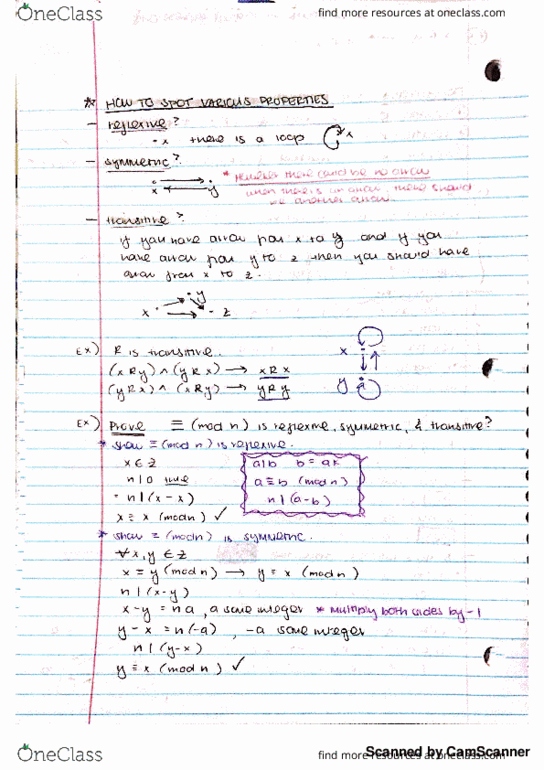 OneClass
find more resources at oneclass.com
* HOW TO SPOT VARIOUS PROPERTIES
- reflexive?
• x there is a loop x
- symmetric?
x y
* remember there could be no arrow
when there is an arrow, there should
be another arrow.
- transitive?
if you have arrow from x to y and if you
have arrow from y to z then you should have
arrow from x to z.
x y z
Ex) R is transitive.
(xRy) ∧ (yRx) → xRx
(yRx) ∧ (xRy) → yRy
x
y
Ex) Prove ≡ (mod n) is reflexive, symmetric, & transitive?
* show ≡ (mod n) is reflexive.
x ∈ Z
n | 0 true
n | (x - x)
x ≡ x (mod n) ✓
a|b b = ak
a ≡ b (mod n)
n | (a-b)
* show ≡ (mod n) is symmetric.
∀ x, y ∈ Z
x ≡ y (mod n) → y ≡ x (mod n)
n | (x-y)
x - y = na, a some integer * multiply both sides by -1
y - x = n(-a), -a some integer
n | (y-x)
y ≡ x (mod n) ✓
OneClass
find more resources at oneclass.com
Scanned by CamScanner